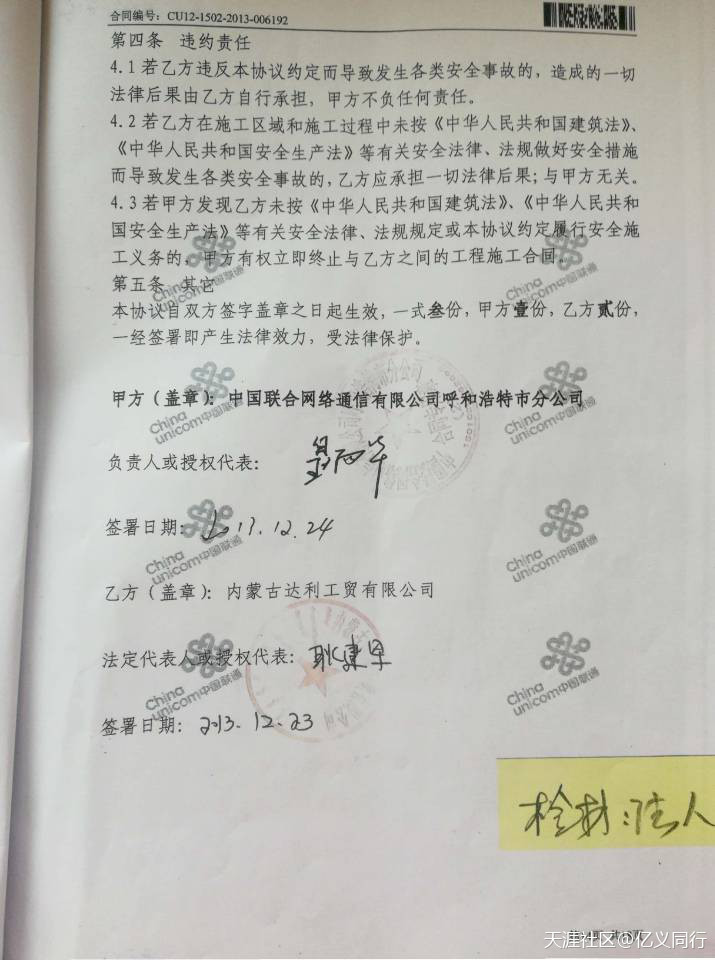 合同编号：CU12-1502-2013-006192
第四条 违约责任
4.1若乙方违反本协议约定而导致发生各类安全事故的，造成的一切
法律后果由乙方自行承担，甲方不负任何责任。
4.2若乙方在施工区域和施工过程中未按《中华人民共和国建筑法》、
《中华人民共和国安全生产法》等有关安全法律、法规做好安全措施
而导致发生各类安全事故的，乙方应承担一切法律后果；与甲方无关。
4.3若甲方发现乙方未按《中华人民共和国建筑法》、《中华人民共和
国安全生产法》等有关安全法律、法规规定或本协议约定履行安全施
工义务的，甲方有权立即终止与乙方之间的工程施工合同。
第五条 其它
本协议自双方签字盖章之日起生效，一式叁份，甲方壹份，乙方贰份，
一经签署即产生法律效力，受法律保护。
甲方（盖章）：中国联合网络通信有限公司呼和浩特市分公司
负责人或授权代表：
签署日期：2013.12.24
乙方（盖章）：内蒙古达利工贸有限公司
法定代表人或授权代表：
签署日期：2013.12.23
China
unicom中国联通
China
unicom中国联通
China
unicom中国联通
China
unicom中国联通
China
unicom中国联通
China
unicom中国联通
China
unicom中国联通
China
unicom中国联通
天涯社区@亿义同行